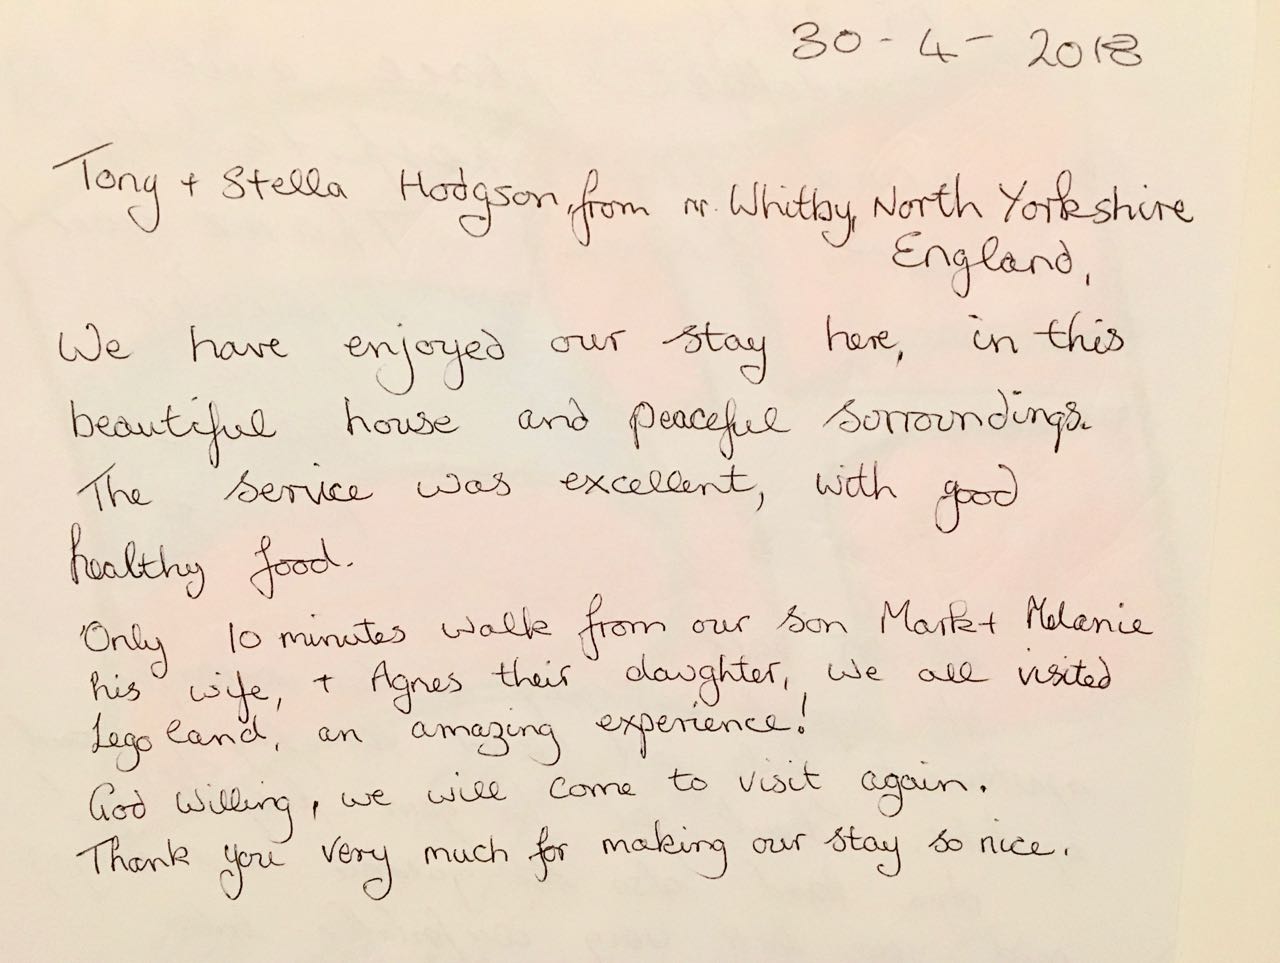 30 - 4 - 2018
Tony + Stella Hodgson, from nr. Whitby, North Yorkshire
England,
We have enjoyed our stay here, in this
beautiful house and peaceful sorroundings.
The service was excellent, with good
healthy food.
Only 10 minutes walk from our son Mark + Melanie
his wife, + Agnes their daughter, we all visited
Legoland, an amazing experience!
God willing, we will come to visit again.
Thank you very much for making our stay so nice.